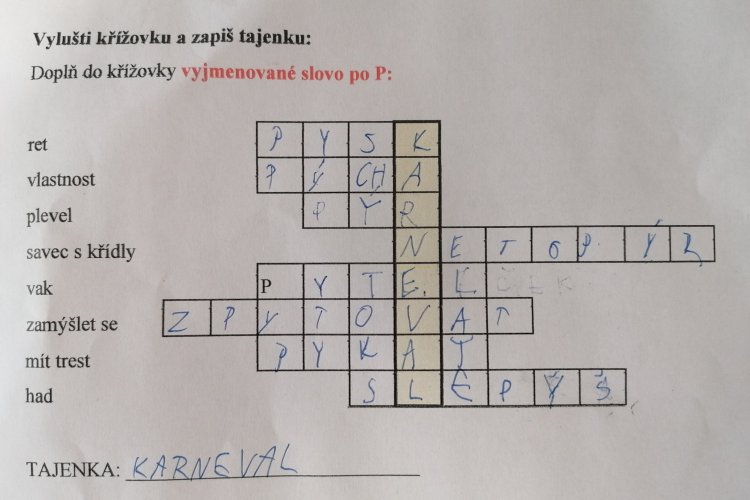 Vylušti křížovku a zapiš tajenku:
Doplň do křížovky vyjmenované slovo po P:
ret P Y S K
vlastnost P Ý CH A
plevel P Ý R
savec s křídly N E T O P Ý R
vak P Y T E L
zamýšlet se Z P Y T O V A T
mít trest P Y K A T
had S L E P Ý Š
TAJENKA: KARNEVAL